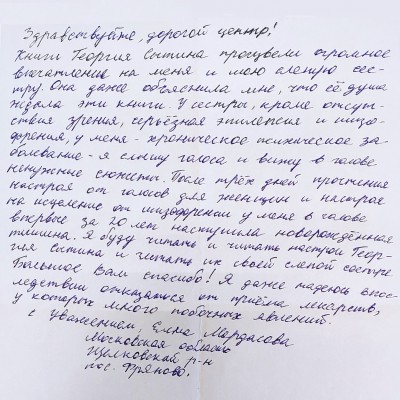 Здравствуйте, дорогой центр!
Книги Георгия Сытина произвели огромное
впечатление на меня и мою слепую сес-
тру. Она даже объяснила мне, что её душа
ждала эти книги. У сестры, кроме отсут-
ствия зрения, серьёзная эпилепсия и шизо-
френия, у меня - хроническое психическое за-
болевание - я слышу голоса и вижу в голове
ненужные сюжеты. После трёх дней прочтения
настроя от голосов для женщин и настроя
на исцеление от шизофрении у меня в голове
впервые за 20 лет наступила новорождённая
тишина. Я буду читать и читать настрои Геор-
гия Сытина и читать их своей слепой сестре.
Большое Вам спасибо! Я даже надеюсь впос-
ледствии отказаться от приёма лекарств,
у которых много побочных явлений.
С уважением, Елена Мардасова
Московская область
Щелковский р-н
пос. Фряново.